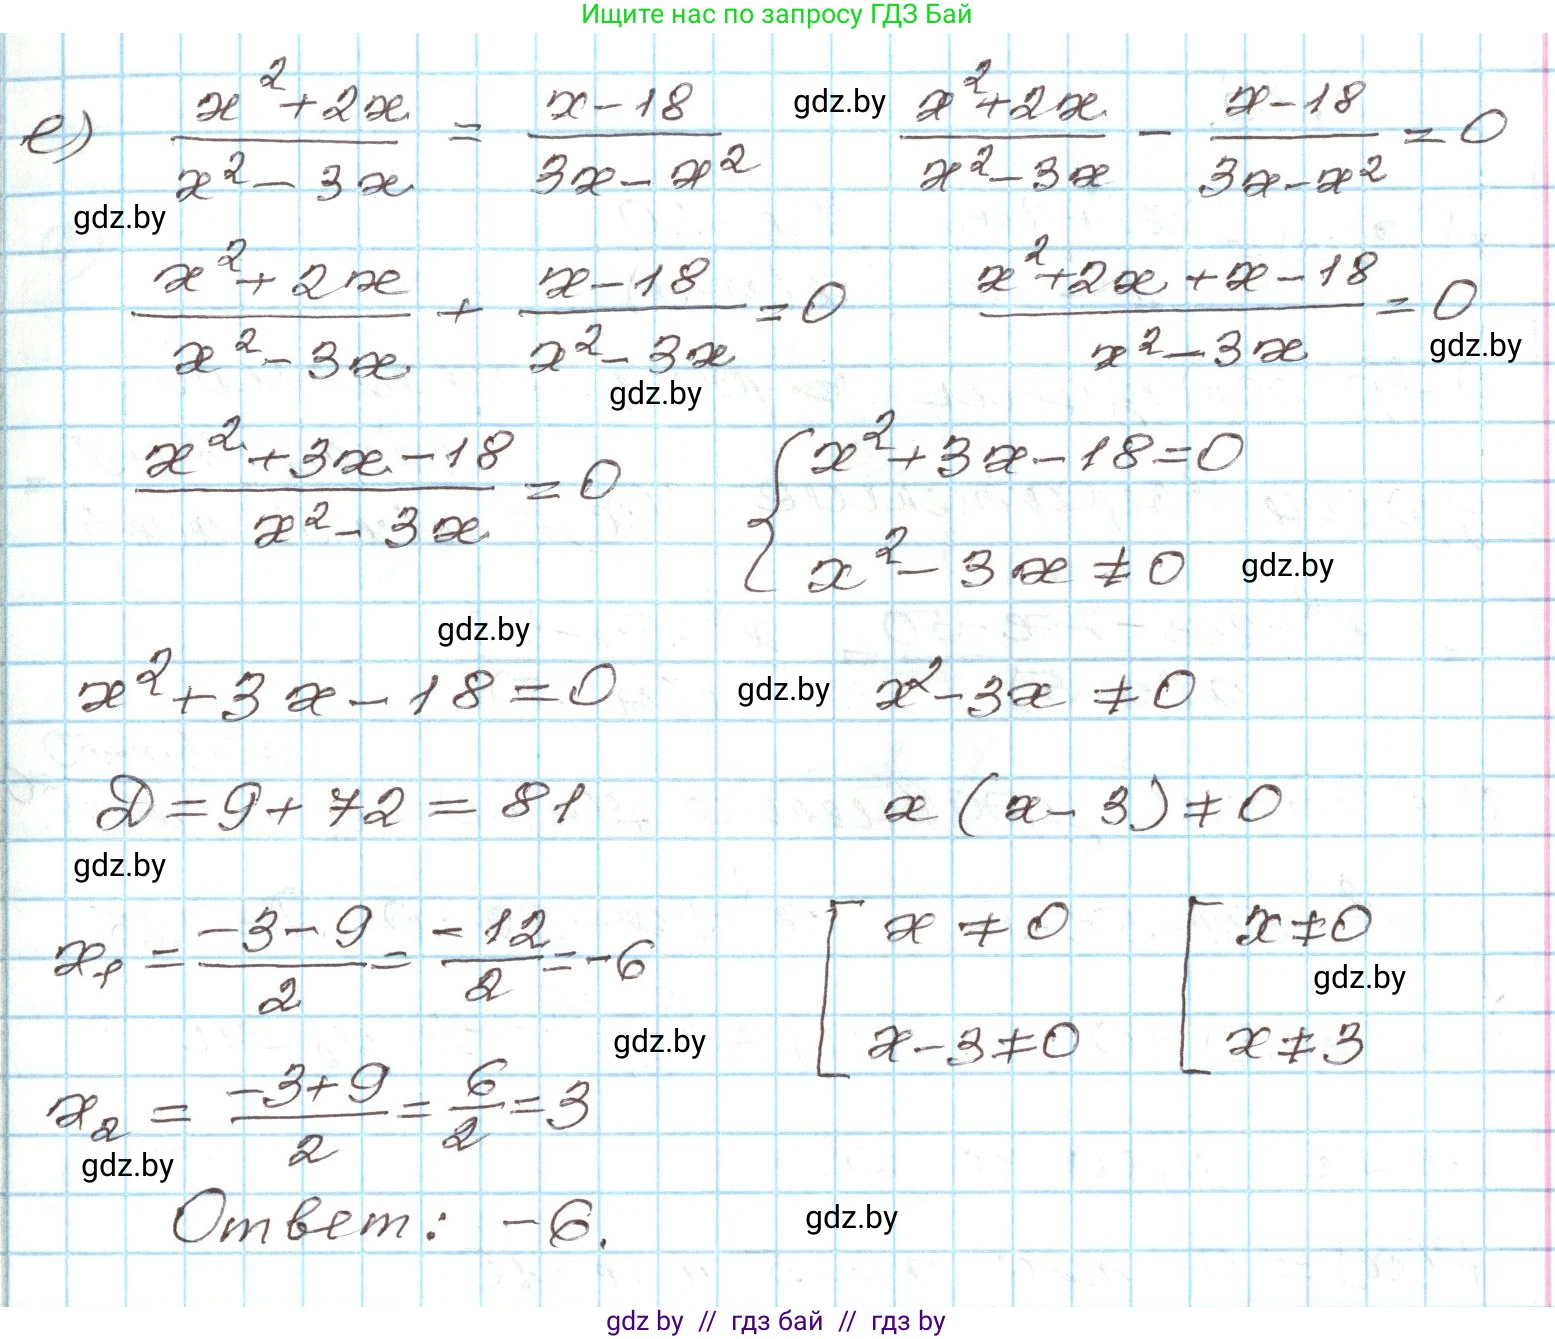 Ищите нас по запросу ГДЗ Бай
е) (x²+2x)/(x²-3x) = (x-18)/(3x-x²) gdz.by (x²+2x)/(x²-3x) - (x-18)/(3x-x²) = 0
gdz.by
(x²+2x)/(x²-3x) + (x-18)/(x²-3x) = 0 (x²+2x+x-18)/(x²-3x) = 0
gdz.by
gdz.by
(x²+3x-18)/(x²-3x) = 0 { x²+3x-18=0
x²-3x≠0 gdz.by
gdz.by
x²+3x-18=0 gdz.by x²-3x≠0
Д=9+72=81 x(x-3)≠0
gdz.by
x₁ = (-3-9)/2 = (-12)/2 = -6 [ x≠0 [ x≠0
gdz.by
gdz.by x-3≠0 x≠3
x₂ = (-3+9)/2 = 6/2 = 3
gdz.by
Ответ: -6. gdz.by
gdz by // гдз бай // гдз by